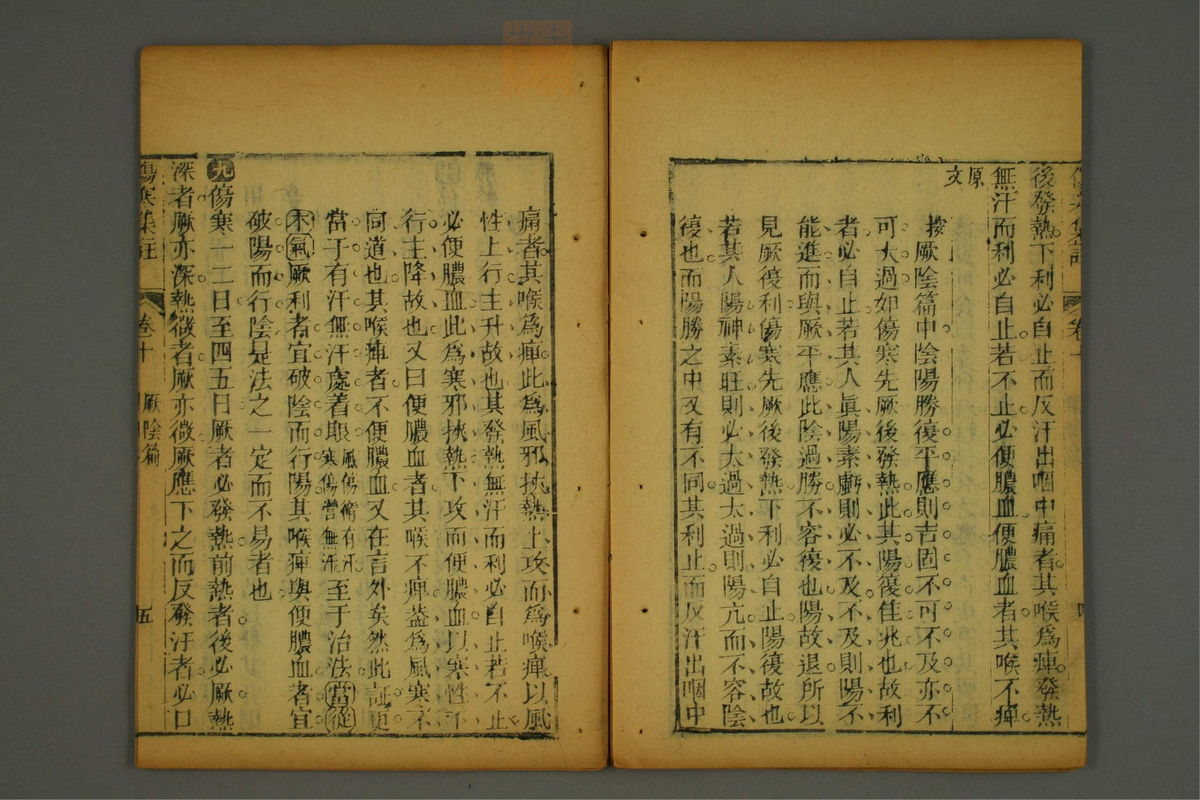 後發熱下利必自止而反汗出咽中痛者其喉爲痺發熱
無汗而利必自止若不止必便膿血便膿血者其喉不痺
原文
按厥陰篇中陰陽勝復平應則吉固不可不及亦不
可太過如傷寒先厥後發熱此其陽復佳兆也故利
者必自止若其人眞陽素虧則必不及不及則陽不
能進而與厥平應此陰過勝不容復也陽故退所以
見厥復利傷寒先厥後發熱下利必自止陽復故也
若其人陽神素旺則必太過太過則陽亢而不容陰
復也而陽勝之中又有不同其利止而反汗出咽中
痛者其喉爲痺此爲風邪挾熱上攻而爲喉痺以風
性上行主升故也其發熱無汗而利必自止若不止
必便膿血此爲寒邪挾熱下攻而便膿血以寒性下
行主降故也又曰便膿血者其喉不痺蓋爲風寒不
同道也其喉痺者不便膿血又在言外矣然此証更
當于有汗無汗處着眼風傷衛有汗寒傷營無汗至于治法當從
本氣厥利者宜破陰而行陽其喉痺與便膿血者宜
破陽而行陰是法之一定而不易者也
九傷寒一二日至四五日厥者必發熱前熱者後必厥熱
深者厥亦深熱微者厥亦微厥應下之而反發汗者必口
傷寒集註 卷十 厥陰篇 五